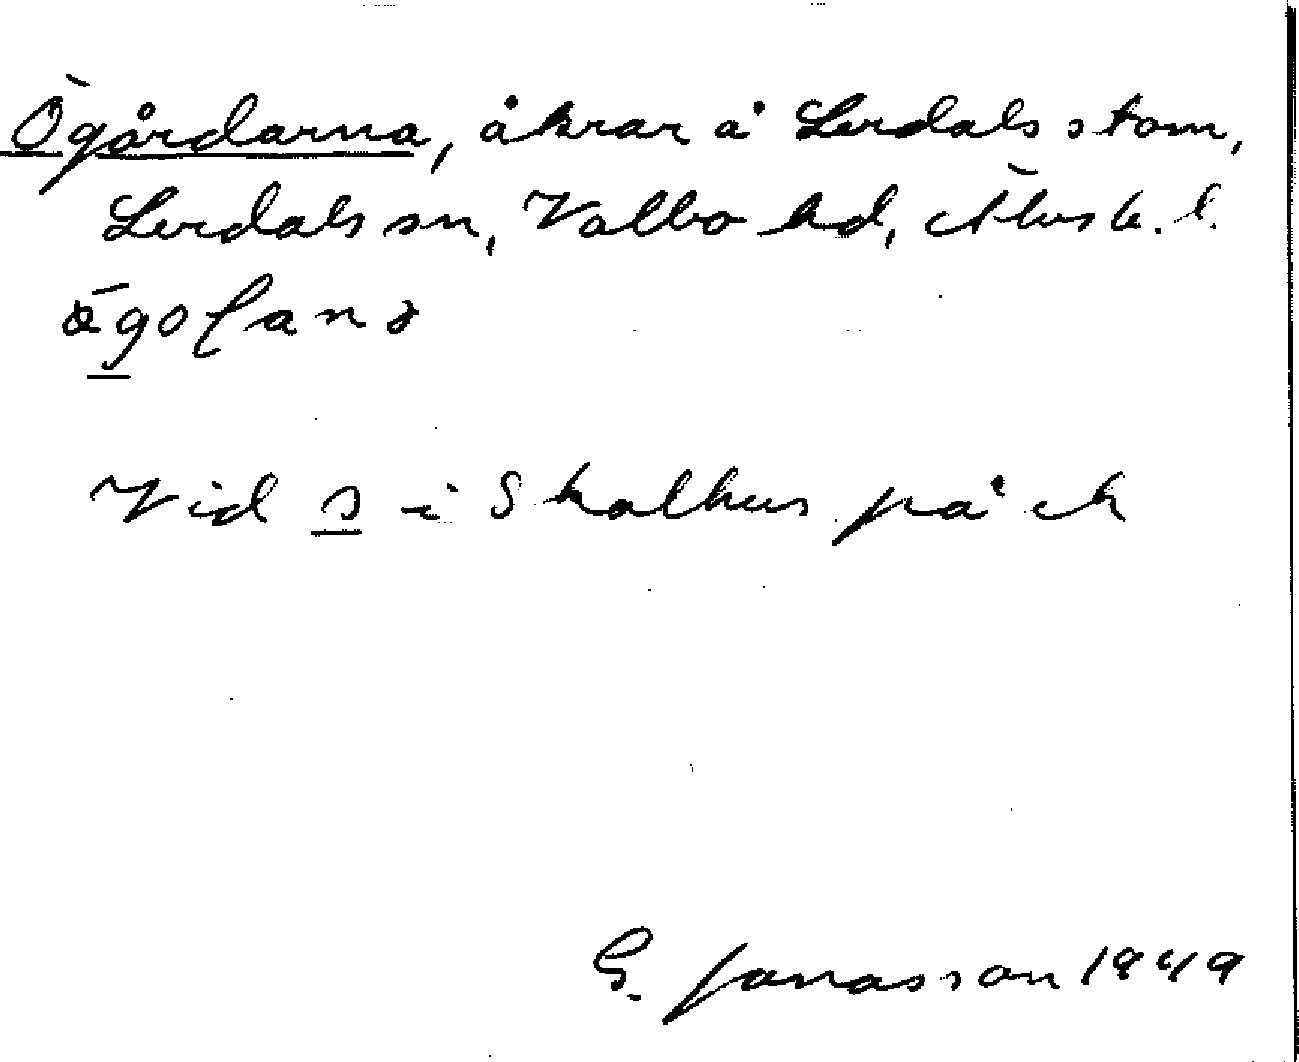 Ögårdarna, åkrar å Lerdals stom,
Lerdals sn, Valbo hd, Älvsb. l.
Vid s i Skalhus på ek
G. Jonasson 1949